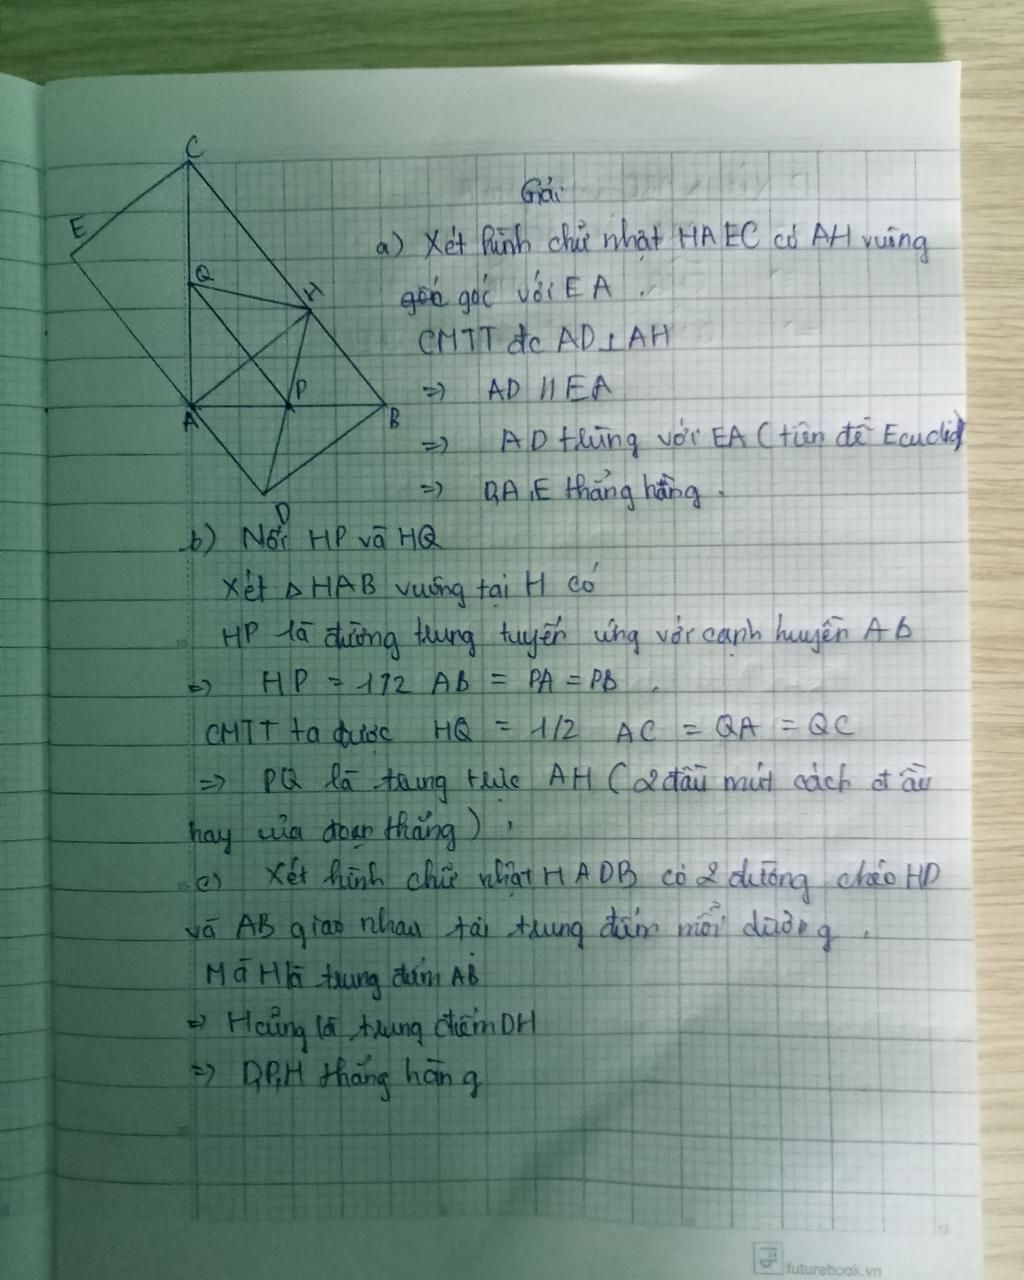 C
E
Q
H
A
P
B
D
Giải
a) Xét hình chữ nhật HAEC có AH vuông
góc với EA.
CMTT đc AD⊥AH
=> AD // EA
=> AD trùng với EA (tiên đề Ecuclid)
=> D,A,E thẳng hàng.
b) Nối HP và HQ
Xét △HAB vuông tại H có
HP là đường trung tuyến ứng với cạnh huyền AB
=> HP = 1/2 AB = PA = PB.
CMTT ta được HQ = 1/2 AC = QA = QC
=> PQ là trung trực AH (2 đầu mút cách đ ầu
hay của đoạn thẳng).
c) Xét hình chữ nhật HADB có 2 đường chéo HD
và AB giao nhau tại trung điểm mỗi đường.
Mà H là trung điểm AB
=> H cũng là trung điểm DH
=> D,P,H thẳng hàng
futurebook.vn